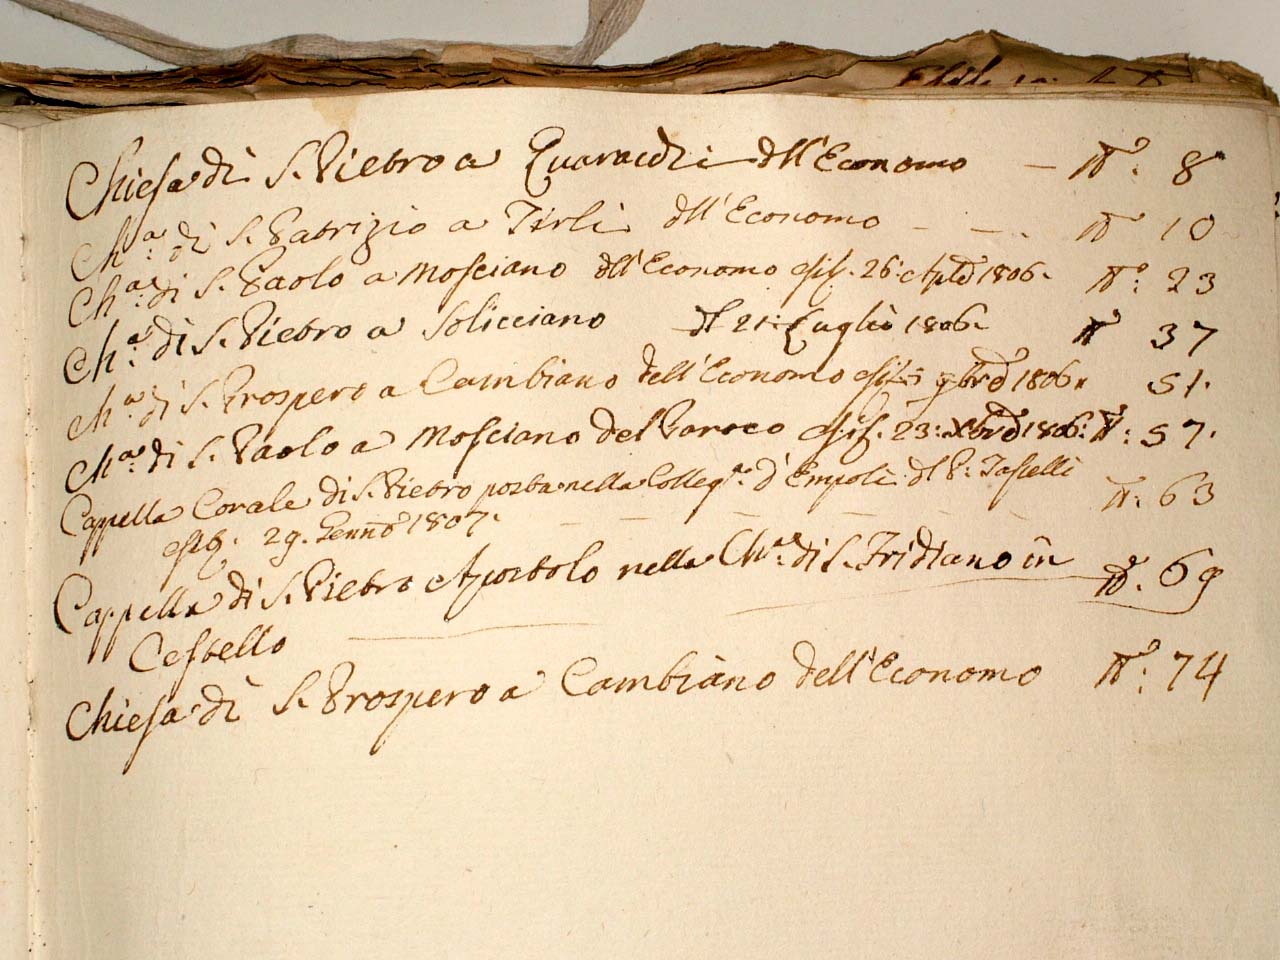 Chiesa di S. Pietro a Quaracchi dll'Economo — N.º 8
Ch.ª di S. Patrizio a Tirli dll'Economo - - - Nº 10
Ch.ª di S. Paolo a Mosciano dll'Economo esib. 26: Aple 1806. Nº: 23
Ch.ª di S. Pietro a Solicciano dl 21: Luglio 1806. Nº 37
Ch.ª di S. Prospero a Cambiano dell'Economo esib. 5 9bre 1806 51.
Ch.ª di S. Paolo a Mosciano del Paroco esib. 23: Xbre 1806: Nº: 57.
Cappella Corale di S. Pietro posta nella Colleg.ª d'Empoli dl P. Tastelli
esib. 29. Genn.º 1807. - - - - - Nº. 63
Cappella di S. Pietro Apostolo nella Ch.ª di S. Fridiano in
Cestello — Nº. 69
Chiesa di S. Prospero a Cambiano dell'Economo Nº: 74